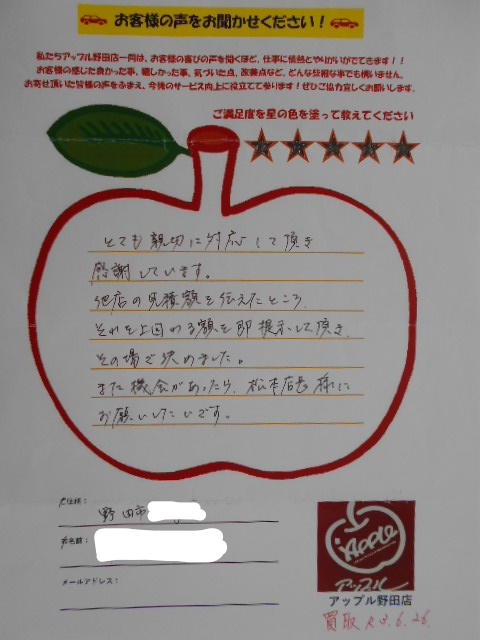 お客様の声をお聞かせください！
私たちアップル野田店一同は、お客様の喜びの声を聞くほど、仕事に情熱とやりがいがでてきます！！
お客様の感じた良かった事、嬉しかった事、気づいた点、改善点など、どんな些細な事でも構いません。
お寄せ頂いた皆様の声をふまえ、今後のサービス向上に役立てて参ります！ぜひご協力宜しくお願いします。
ご満足度を星の色を塗って教えてください
とても親切に対応して頂き
感謝しています。
他店の見積額を伝えたところ、
それを上回わる額を即提示して頂き、
その場で決めました。
また機会があったら、松本店長様に
お願いしたいです。
ご住所：
野田市
お名前：
メールアドレス：
Apple
アップル
アップル野田店
買取 R3.6.26.